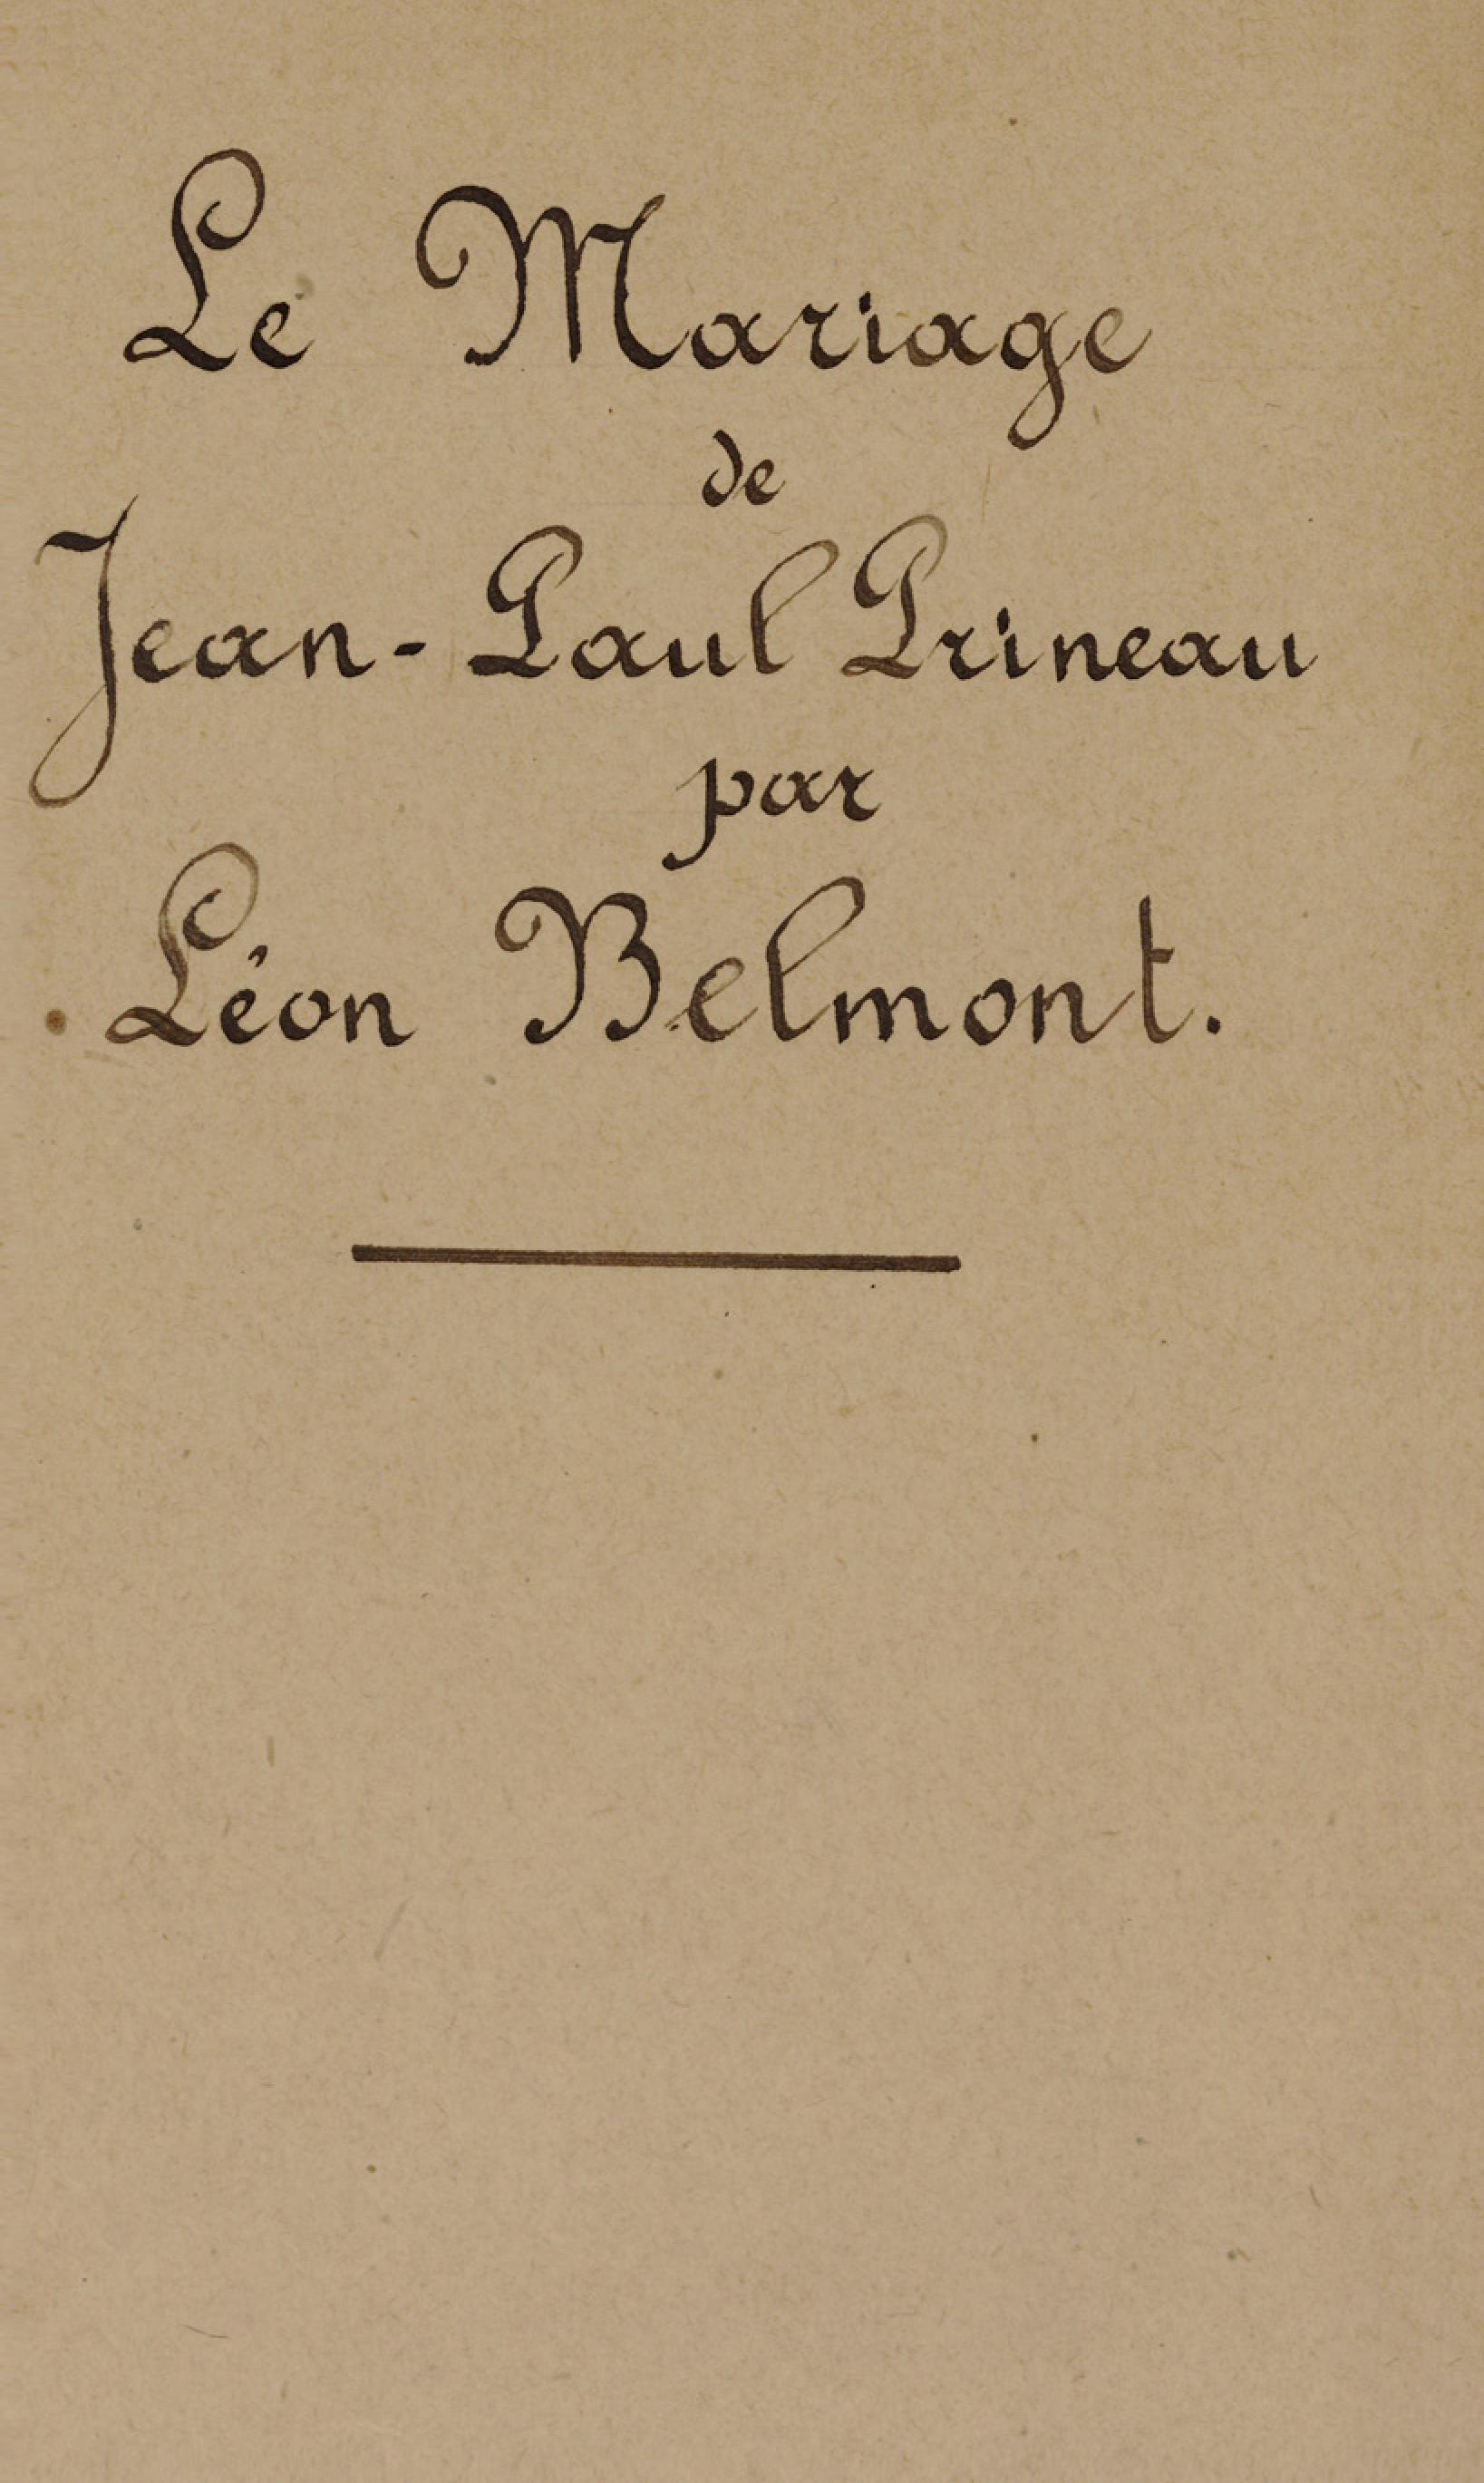 Le Mariage
de
Jean-Paul Prineau
par
Léon Belmont.